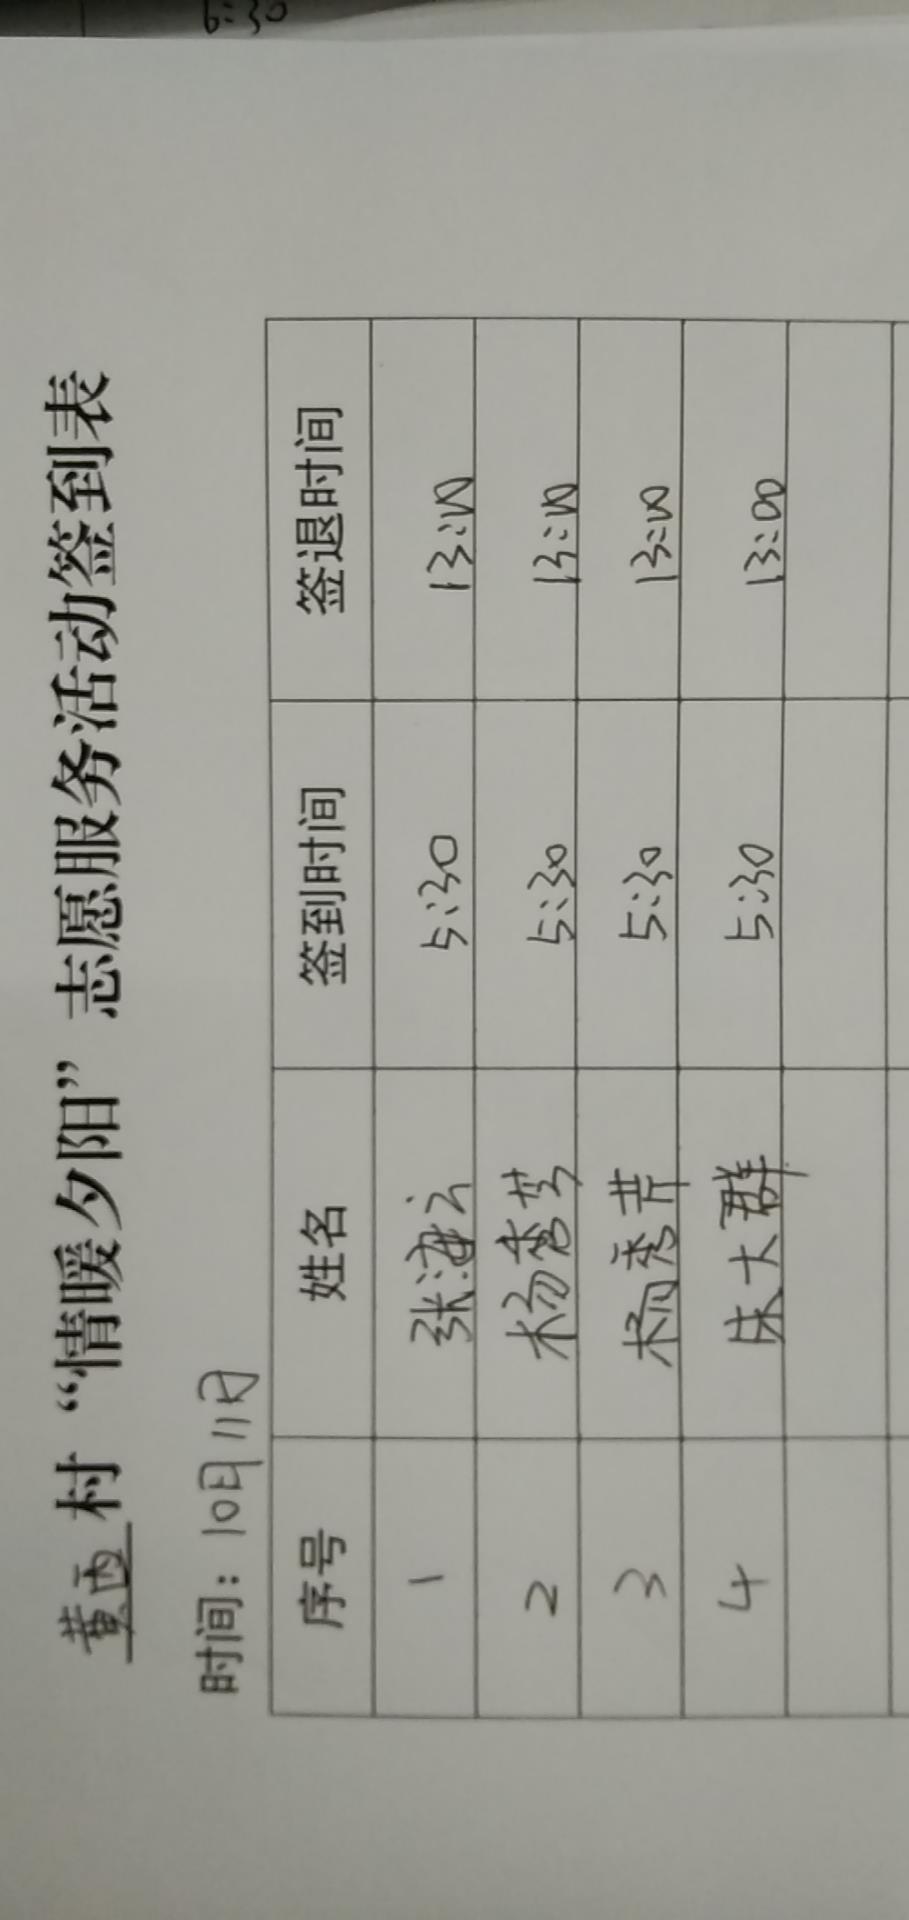 6:30
黄西村“情暖夕阳”志愿服务活动签到表
时间：10月11日
序号 姓名 签到时间 签退时间
1 张海云 5:30 13:00
2 杨秀芳 5:30 13:00
3 杨秀芹 5:30 13:00
4 床大群 5:30 13:00